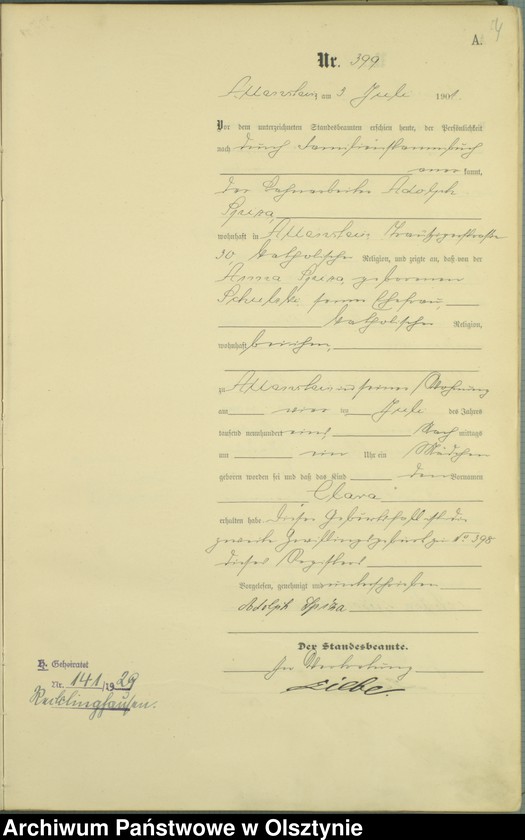 A.
Nr. 399
Allenstein, am 9 Juli 1901.
Vor dem unterzeichneten Standesbeamten erschien heute, der Persönlichkeit
nach durch Familienstammbuch
aner kannt,
der Bahnarbeiter Adolph
Spiza,
wohnhaft in Allenstein, straße
30, katholischer Religion, und zeigte an, daß von der
Anna Spiza, geborenen
seiner Ehefrau,
katholischer Religion,
wohnhaft bei ihm,
zu Allenstein in seiner Wohnung
am vier ten Juli des Jahres
tausend neunhundert eins Nach mittags
um vier Uhr ein Mädchen
geboren worden sei und daß das Kind den Vornamen
Clara
erhalten habe. Dieser Geburtsfall ist die
zweite Zwillingsgeburt zu No 398
dieses Registers
Vorgelesen, genehmigt und unterschrieben
Adolph Spiza
Der Standesbeamte.
In Vertretung
H. Geheiratet
Nr. 141/1929
Recklinghausen.
Archiwum Państwowe w Olsztynie